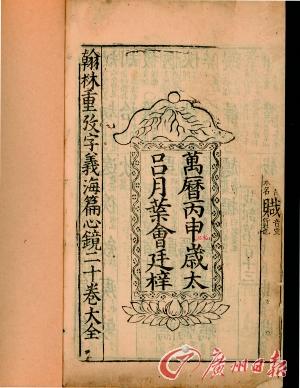 萬曆丙申歲太
呂月葉會廷梓
翰林重攷字義海篇心鏡二十卷大全
廣州日報